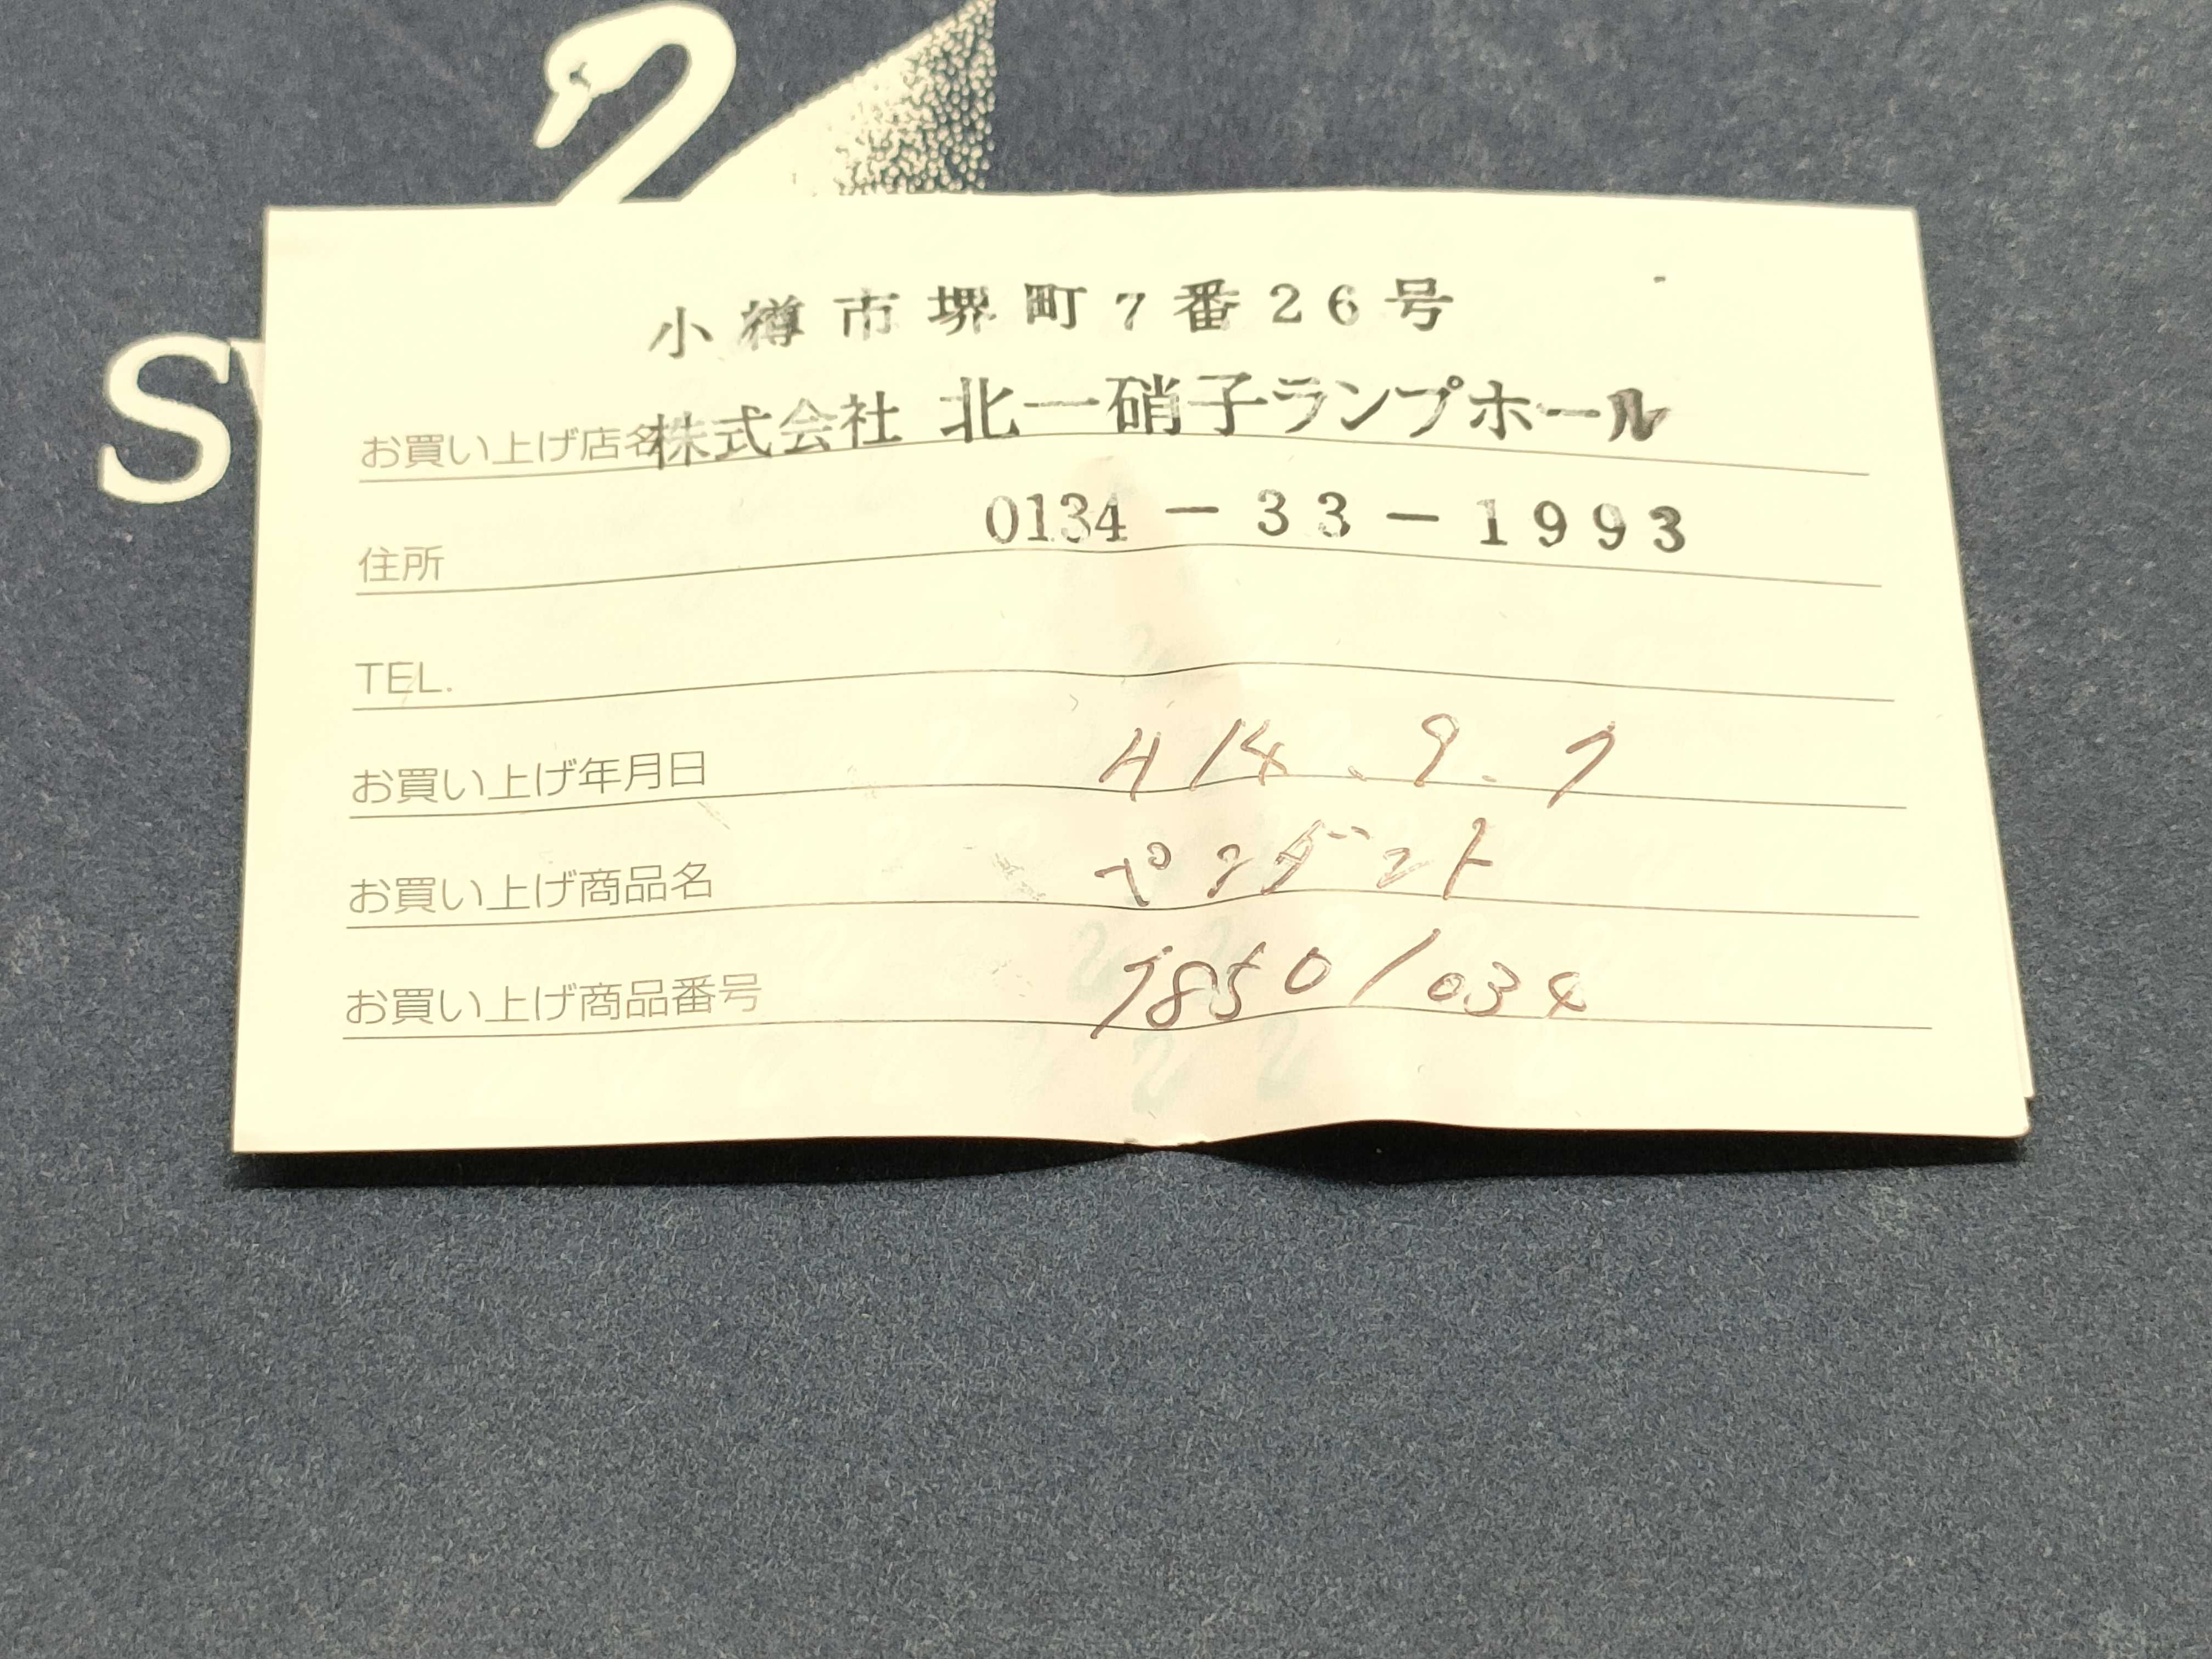 小樽市堺町7番26号
お買い上げ店名 株式会社 北一硝子ランプホール
0134-33-1993
住所
TEL.
お買い上げ年月日 H14.9.7
お買い上げ商品名 ペンダント
お買い上げ商品番号 78501034